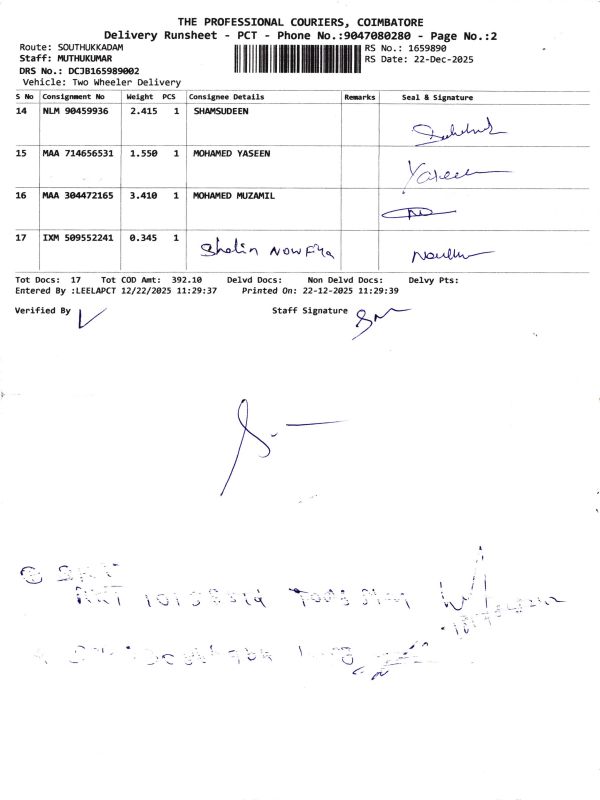 THE PROFESSIONAL COURIERS, COIMBATORE
Delivery Runsheet - PCT - Phone No.:9047080280 - Page No.:2
Route: SOUTHUKKADAM RS No.: 1659890
Staff: MUTHUKUMAR RS Date: 22-Dec-2025
DRS No.: DCJB165989002
Vehicle: Two Wheeler Delivery
S No Consignment No Weight PCS Consignee Details Remarks Seal & Signature
14 NLM 90459936 2.415 1 SHAMSUDEEN
15 MAA 714656531 1.550 1 MOHAMED YASEEN Yaseen
16 MAA 304472165 3.410 1 MOHAMED MUZAMIL
17 IXM 509552241 0.345 1
Tot Docs: 17 Tot COD Amt: 392.10 Delvd Docs: Non Delvd Docs: Delvy Pts:
Entered By :LEELAPCT 12/22/2025 11:29:37 Printed On: 22-12-2025 11:29:39
Verified By Staff Signature